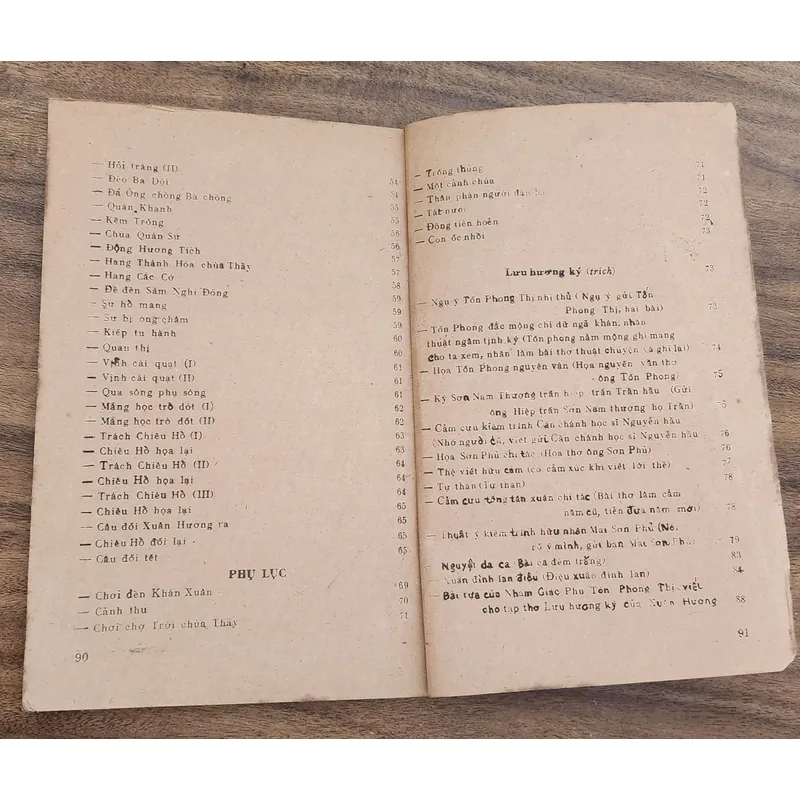 — Hỏi trăng (II)
— Đèo Ba Dội 54
— Đá Ông chồng Bà chồng 54
— Quán Khánh 55
— Kẽm Trống 55
— Chùa Quán Sứ 56
— Động Hương Tích 56
— Hang Thánh Hóa chùa Thầy 57
— Hang Cắc Cớ 57
— Đề đền Sầm Nghi Đống 58
— Sư hổ mang 59
— Sư bị ong châm 59
— Kiếp tu hành 59
— Quan thị 60
— Vịnh cái quạt (I) 60
— Vịnh cái quạt (II) 61
— Qua sông phụ sóng 61
— Mắng học trò dốt (I) 62
— Mắng học trò dốt (II) 62
— Trách Chiêu Hổ (I) 63
— Chiêu Hổ họa lại 63
— Trách Chiêu Hổ (II) 64
— Chiêu Hổ họa lại 64
— Trách Chiêu Hổ (III) 64
— Chiêu Hổ họa lại 65
— Câu đối Xuân Hương ra 65
— Chiêu Hổ đối lại 65
— Câu đối tết 65
PHỤ LỤC
— Chơi đền Khán Xuân 69
— Cảnh thu 70
— Chơi chợ Trời chùa Thầy 71
90
— Trống thủng 71
— Một cảnh chùa 71
— Thân phận người đàn bà 72
— Tát nước 72
— Đồng tiền hoẻn 72
— Con ốc nhồi 73
Lưu hương ký (trích) 73
— Ngụ ý Tốn Phong Thị nhị thủ (Ngụ ý gửi Tốn
Phong Thị, hai bài) 73
— Tốn Phong đắc mộng chỉ dữ ngã khán, nhân
thuật ngâm tịnh ký (Tốn phong nằm mộng ghi mang
cho ta xem, nhân làm bài thơ thuật chuyện và ghi lại) 74
— Họa Tốn Phong nguyên vận (Họa nguyên vận thơ
ông Tốn Phong) 75
— Ký Sơn Nam Thượng trấn hiệp trấn Trần hầu (Gửi
ông Hiệp trấn Sơn Nam thượng họ Trần) 75
— Cảm cựu kiêm trình Cần chánh học sĩ Nguyễn hầu
(Nhớ người cũ, viết gửi Cần chánh học sĩ Nguyễn hầu 76
— Họa Sơn Phủ chi tác (Họa thơ ông Sơn Phủ) 76
— Thệ viết hữu cảm (có cảm xúc khi viết lời thề) 77
— Tự thán (Tự than) 78
— Cảm cựu tống tân xuân chi tác (Bài thơ làm cảm
năm cũ, tiễn đưa năm mới) 78
— Thuật ý kiêm trình hữu nhân Mai Sơn Phủ (Nói
rõ ý mình, gửi bạn Mai Sơn Phủ) 79
— Nguyệt dạ ca Bài ca đêm trăng) 83
— Xuân đình lan điệu (Điệu xuân đình lan) 84
— Bài tựa của Nham Giác Phu Tốn Phong Thị viết
cho tập thơ Lưu hương ký của Xuân Hương 88
91